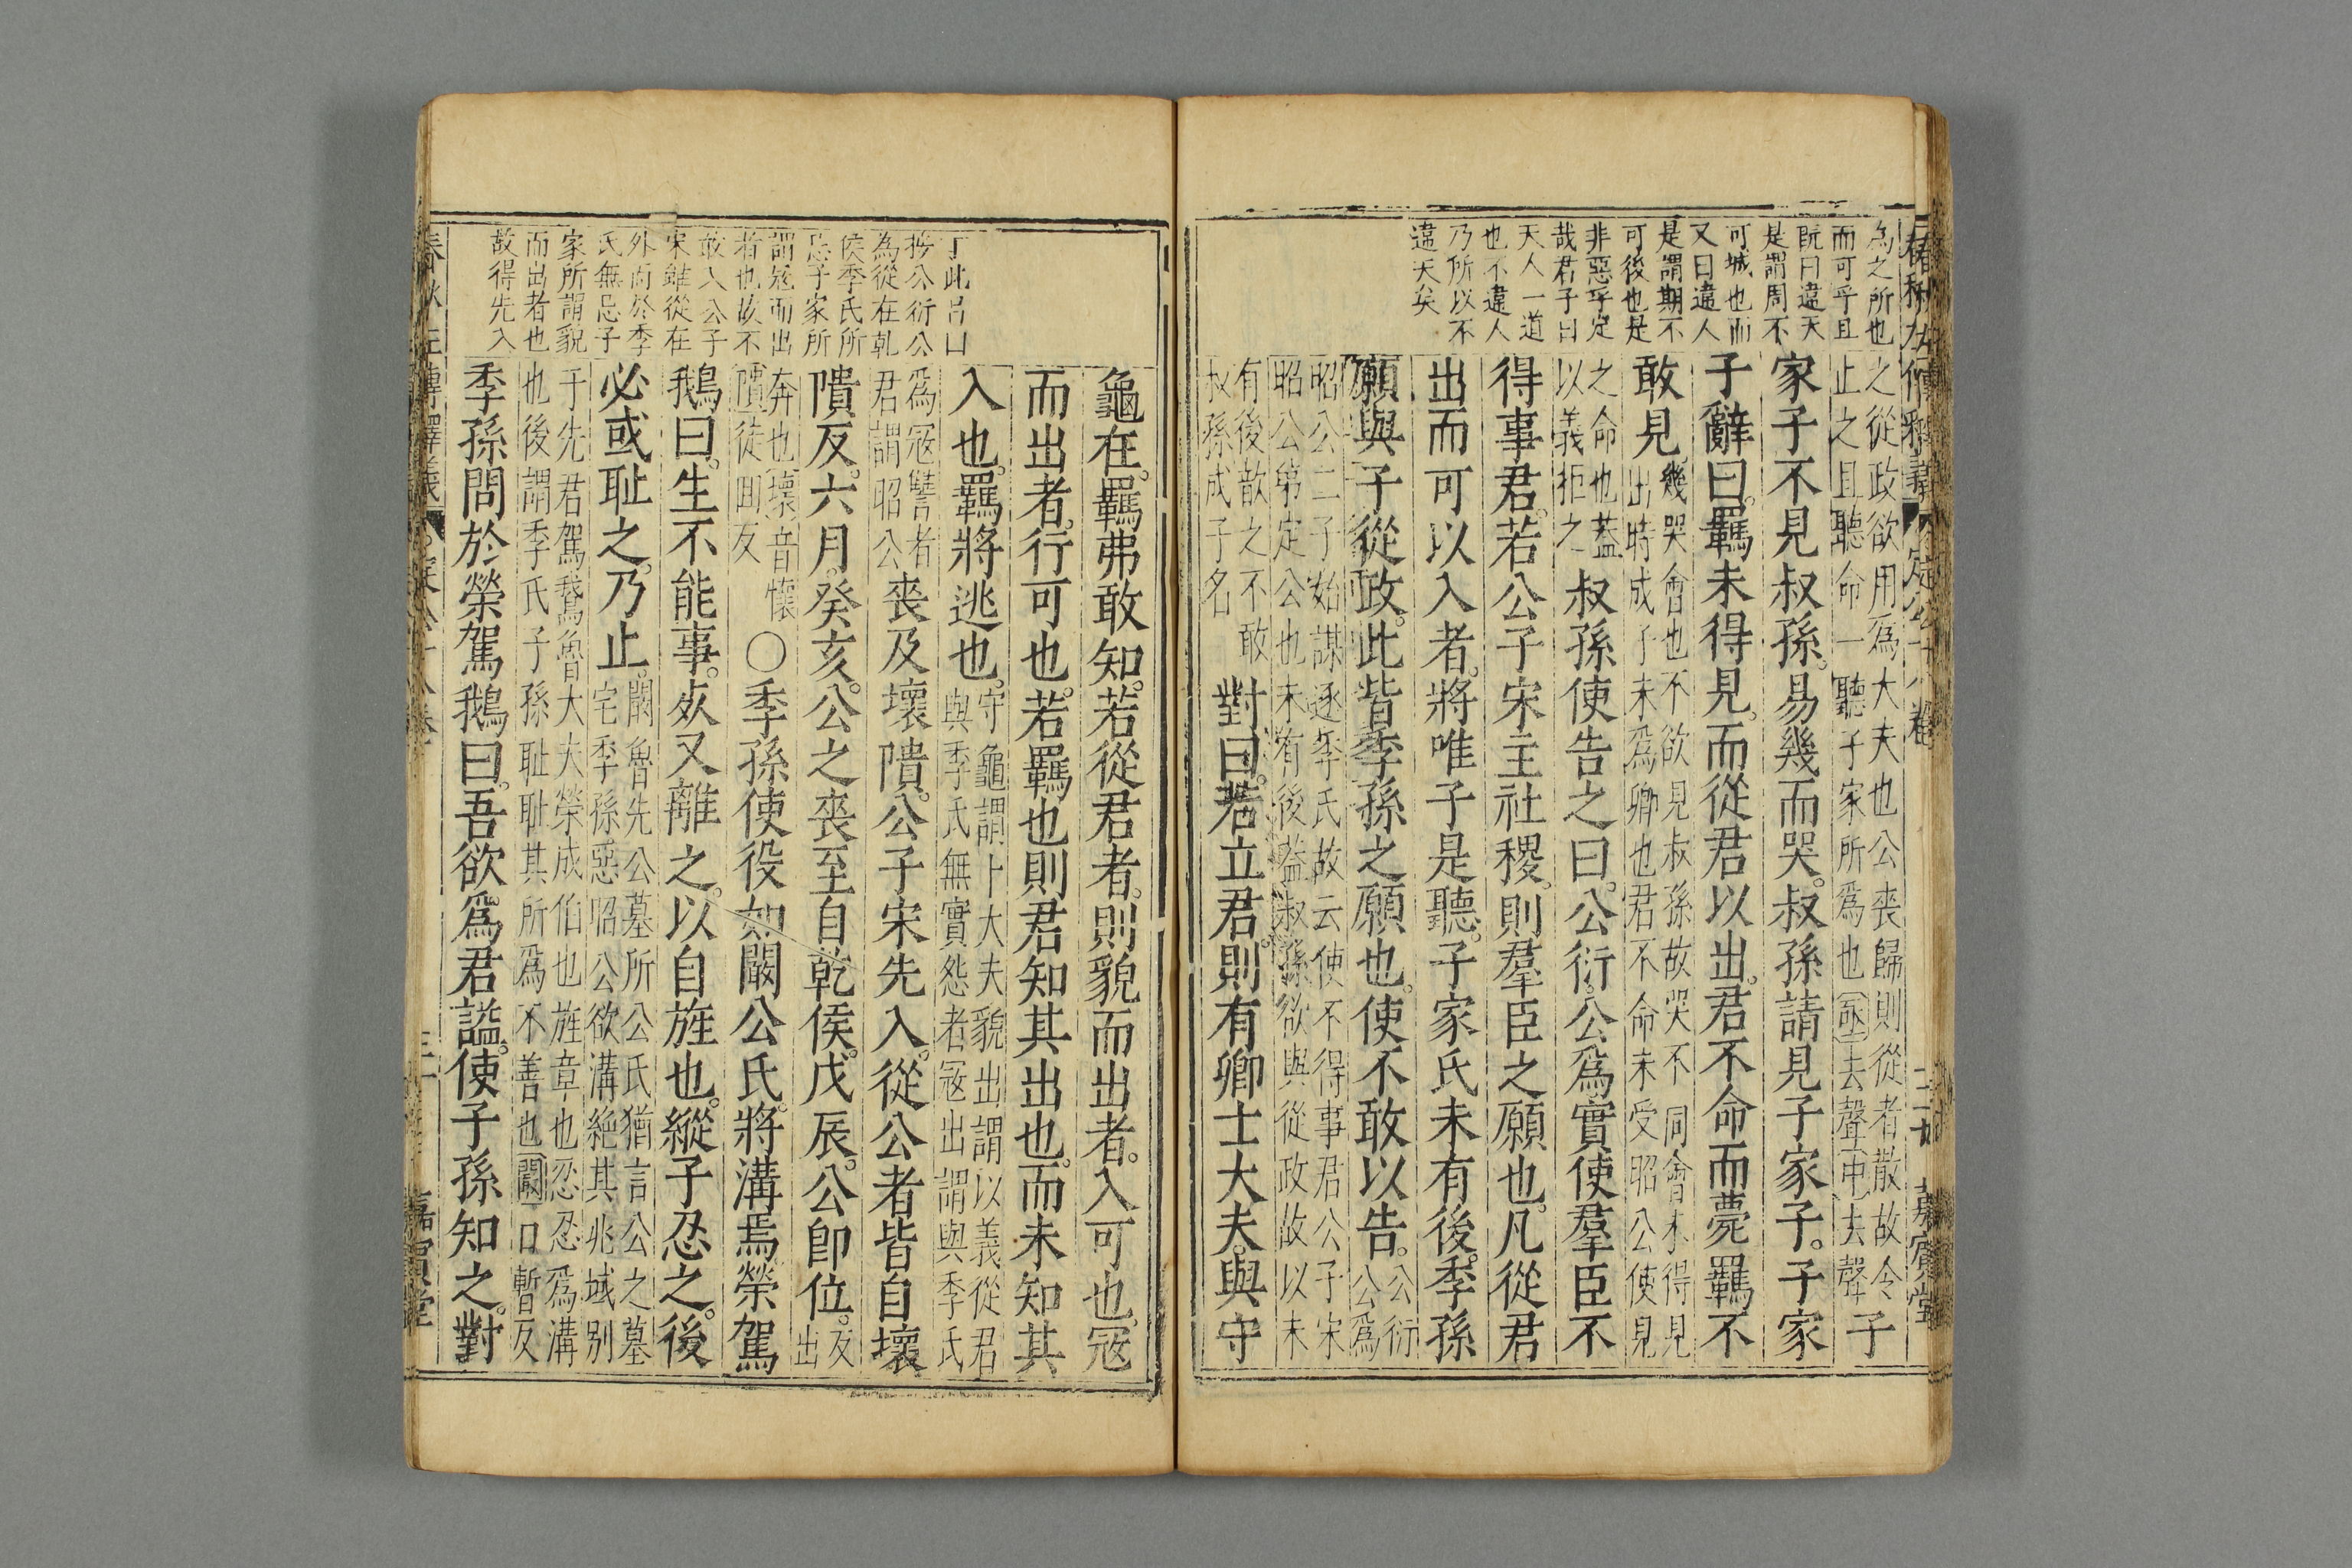 春秋左傳釋義 定公十八卷 嘉賓堂
為之所也
而可乎且
既曰違天
是謂周不
可城也而
又曰違人
是謂期不
可後也是
非惡乎定
哉君子曰
天人一道
也不違人
乃所以不
違天矣
之從政欲用為大夫也公喪歸則從者散故令
止之且聽命一聽子家所為也亟去聲中去聲
子
家子不見叔孫。易幾而哭。叔孫請見子家子。子家
子辭曰。羈未得見。而從君以出。君不命而薨。羈不
敢見
幾哭會也不欲見叔孫故哭不同會未得見
出時成子未為卿也君不命未受昭公使見
之命也蓋
以義拒之
叔孫使告之曰。公衍。公為實使羣臣不
得事君。若公子宋主社稷。則羣臣之願也。凡從君
出而可以入者。將唯子是聽。子家氏未有後。季孫
願與子從政。此皆季孫之願也。使不敢以告。
公衍
公為
昭公二子始謀逐季氏故云使不得事君公子宋
昭公弟定公也未有後蓋叔孫欲與從政故以未
有後歆之不敢
叔孫成子名
對曰。若立君。則有卿士大夫。與守
按公衍公
為從在乾
侯季氏所
忌子家所
謂寇而出
者也故不
敢入公子
宋雖從在
外而於季
氏無忌子
家所謂貌
而出者也
故得先入
龜在。羈弗敢知。若從君者。則貌而出者。入可也。寇
而出者。行可也。若羈也則君知其出也。而未知其
入也。羈將逃也。
守龜謂卜大夫貌出謂以義從君
與季氏無實怨者寇出謂與季氏
為寇讐者
君謂昭公
喪及壞隤。公子宋先入。從公者皆自壞
隤反。六月。癸亥。公之喪至自乾侯。戊辰。公即位。
反
出
奔也壞音懷
隤徒回友
○季孫使役如闞公氏。將溝焉榮駕
鵝曰。生不能事。死又離之。以自旌也。縱子忍之。後
必或耻之。乃止。
闞魯先公墓所公氏猶言公之墓
宅季孫惡昭公欲溝絶其兆域别
于先君駕鵞魯大夫榮成伯也旌章也忍忍為溝
也後謂季氏子孫耻耻其所為不善也闞口暫反
季孫問於榮駕鵝曰。吾欲為君謚。使子孫知之。對
嘉賓堂